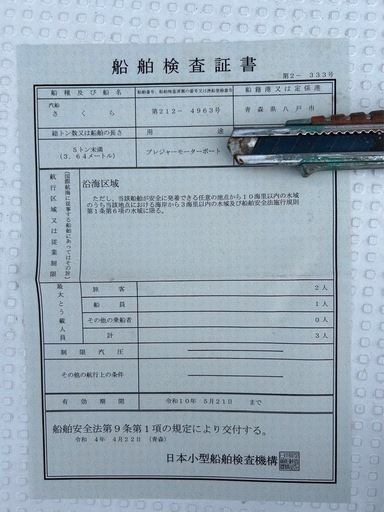 船舶検査証書
第2- 333号
船種及び船名
船舶番号、船舶検査済票の番号又は漁船登録番号
船籍港又は定係港
汽船
さくら
第212-4963号
青森県八戸市
総トン数又は船舶の長さ
用途
5トン未満
(3.64メートル)
プレジャーモーターボート
航行区域又は従業制限
(国際航海に従事する船舶にあってはその旨)
沿海区域
ただし、当該船舶が安全に発着できる任意の地点から10海里以内の水域
のうち当該地点における海岸から3海里以内の水域及び船舶安全法施行規則
第1条第6項の水域に限る。
最大とう載人員
旅客 2人
船員 1人
その他の乗船者 0人
計 3人
制限汽圧
その他の航行上の条件
有効期間 令和10年 5月21日 まで
船舶安全法第9条第1項の規定により交付する。
令和 4年 4月22日 (青森)
日本小型船舶検査機構